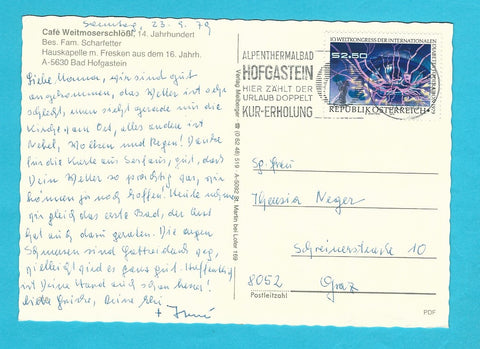 Samstag, 23. 6. 79
Café Weitmoserschlößl, 14. Jahrhundert
Bes. Fam. Scharfetter
Hauskapelle m. Fresken aus dem 16. Jahrh.
A-5630 Bad Hofgastein
Liebe Mamma, wir sind gut
angekommen, das Wetter ist sehr
schlecht, man sieht gerade nur die
Kirche vom Ort, alles andere ist
Nebel, Wolken und Regen! Danke
für die Karte aus Serfaus, gut, daß
Dein Wetter so prächtig war, wir
können ja noch hoffen! Heute nehmen
wir gleich das erste Bad, der Arzt
hat auch dazu geraten. Die argen
Schmerzen sind Gottseidank weg,
vielleicht wird es ganz gut. Hoffentlich
ist Deine Hand auch schon besser!
Liebe Grüße, Deine
+
Verlag Meiberger ☎ (0 62 46) 519 A-5092 St. Martin bei Lofer 169
ALPENTHERMALBAD
HOFGASTEIN
HIER ZÄHLT DER
URLAUB DOPPELT
KUR-ERHOLUNG
10 WELTKONGRESS DER INTERNATIONALEN
S2.50
REPUBLIK ÖSTERREICH
Sg. Frau
Theresia Neger
Schreinerstraße 10
8052 Graz
Postleitzahl
PDF